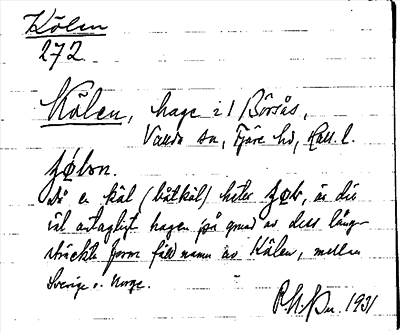 Kölen
272
Kölen, hage i 1 Börsås,
Vallda sn, Fjäre hd, Hall. l.
Då en köl (båtköl) heter är det
väl antagligt hagen på grund av dess lång-
sträckta form fått namn av Kölen, mellan
Sverige o. Norge.
1931